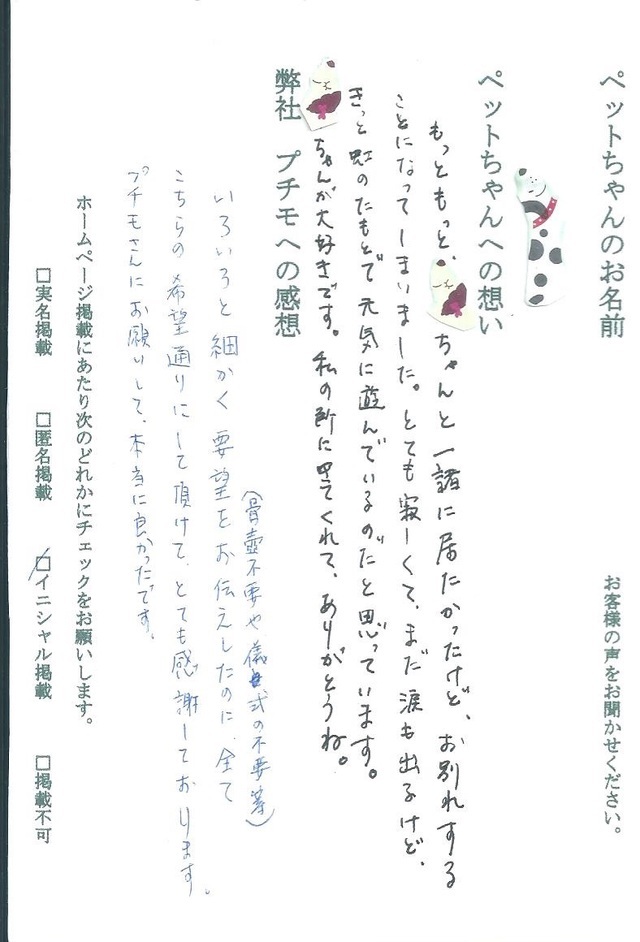 お客様の声をお聞かせください。
ペットちゃんのお名前
ペットちゃんへの想い
もっともっと、ちゃんと一諸に居たかったけど、お別れする
ことになってしまいました。とても寂しくて、まだ涙も出るけど、
きっと虹のたもとで元気に遊んでいるのだと思っています。
ちゃんが大好きです。私の所に来てくれて、ありがとうね。
弊社 プチモへの感想
(骨壺不要や儀式の不要等)
いろいろと細かく要望をお伝えしたのに、全て
こちらの希望通りにして頂けて、とても感謝しております。
プチモさんにお願いして、本当に良かったです。
ホームページ掲載にあたり次のどれかにチェックをお願いします。
□実名掲載 □匿名掲載 □イニシャル掲載 □掲載不可